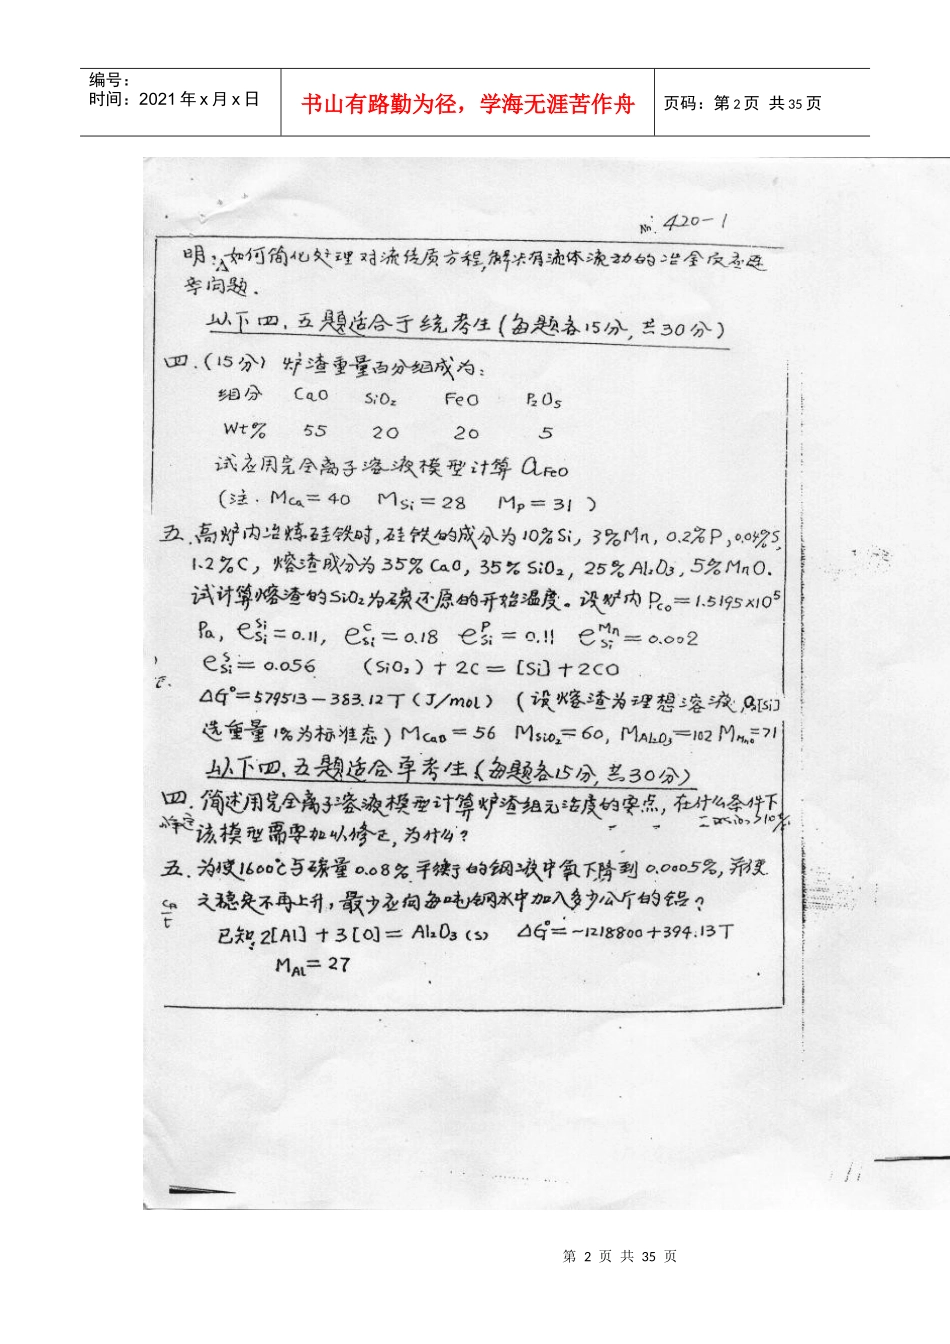 编号：
时间：2021年x月x日
书山有路勤为径，学海无涯苦作舟
页码：第2页 共35页
No. 420-1
明：如何简化处理对流传质方程，解决有流体流动的冶金反应速
率问题．
以下四．五题适合于统考生（每题各15分，共30分）
四．（15分）炉渣重量百分组成为：
组分 CaO SiO₂ FeO P₂O₅
Wt% 55 20 20 5
试应用完全离子溶液模型计算 a_FeO
（注．M_Ca=40 M_Si=28 M_P=31）
五．高炉内冶炼硅铁时，硅铁的成分为10%Si，3%Mn，0.2%P，0.04%S，
1.2%C，熔渣成分为35%CaO，35%SiO₂，25%Al₂O₃，5%MnO．
试计算熔渣的SiO₂为碳还原的开始温度。设炉内P_CO=1.5195×10⁵
Pa，e_Si^Si=0.11，e_Si^C=0.18 e_Si^P=0.11 e_Si^Mn=0.002
e_Si^S=0.056 （SiO₂）+2C=[Si]+2CO
ΔG°=579513-383.12T（J/mol）（设熔渣为理想溶液，a[Si]
选重量1%为标准态）M_CaO=56 M_SiO₂=60，M_Al₂O₃=102 M_MnO=71
以下四．五题适合单考生（每题各15分，共30分）
四．简述用完全离子溶液模型计算炉渣组元活度的要点，在什么条件下
该模型需要加以修正，为什么？
五．为使1600℃与碳量0.08%平衡的钢液中氧下降到0.0005%，并使
之稳定不再上升，最少应向每吨钢水中加入多少公斤的铝？
已知：2[Al]+3[O]=Al₂O₃(s) ΔG°=-1218800+394.13T
M_Al=27
第 2 页 共 35 页